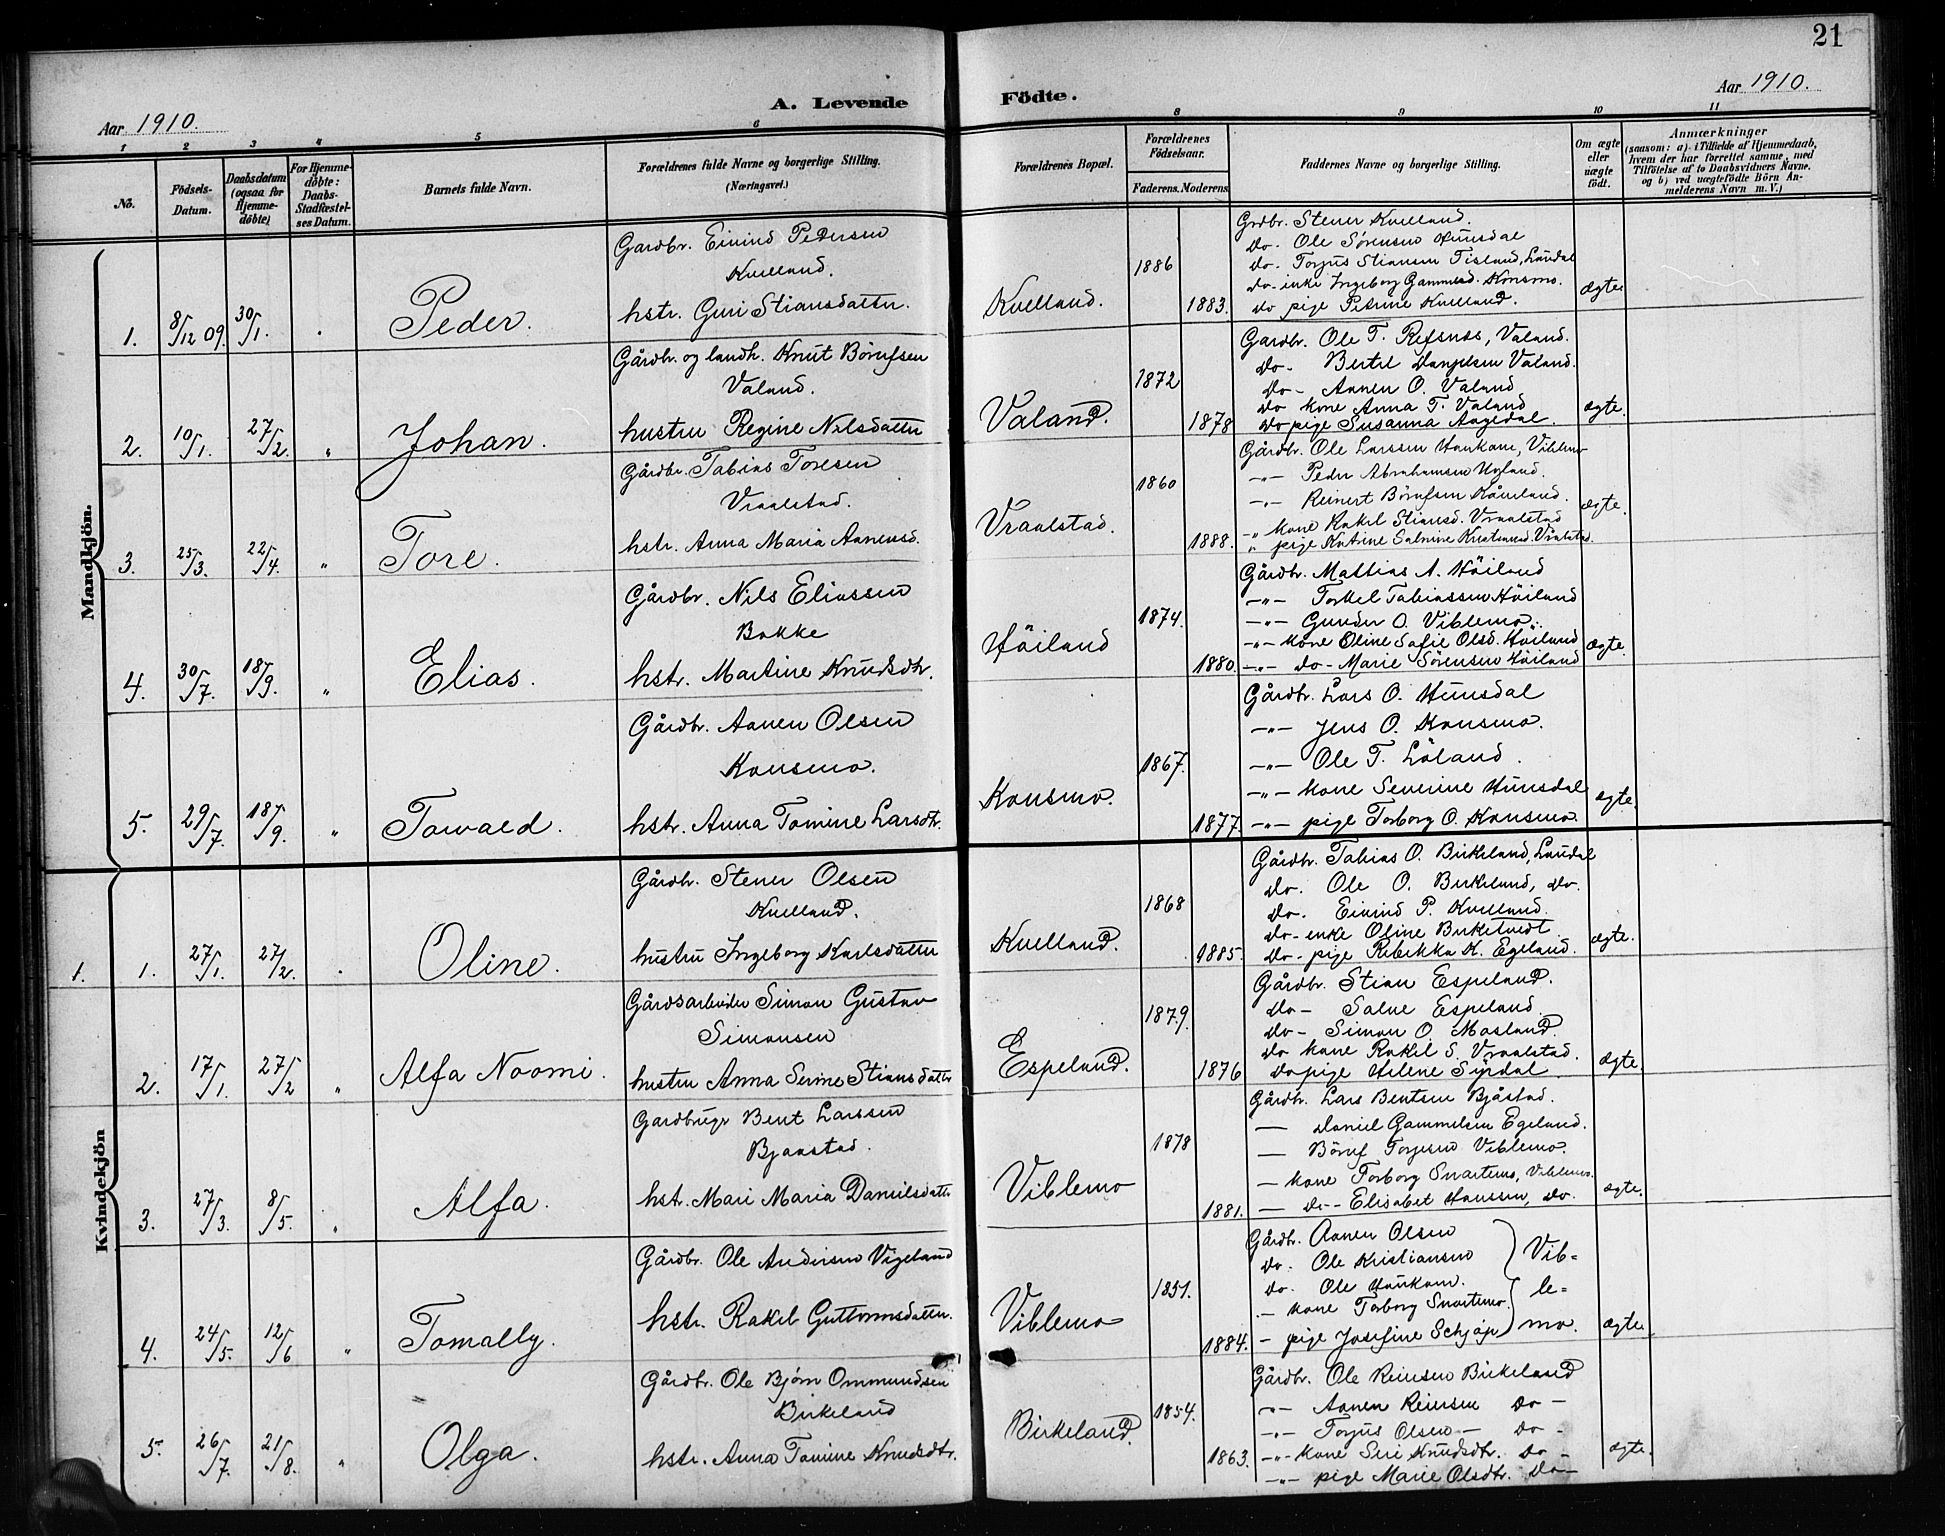 21
A. Levende Födte.
Aar 1910.
Aar 1910.
1 2 3 4 5 6 8 9 10 11
No.
Födsels-Datum.
Daabsdatum (ogsaa for Hjemmedöbte)
For Hjemmedöbte: Daabs-Stadfæstelses Datum.
Barnets fulde Navn.
Forældrenes fulde Navne og borgerlige Stilling. (Næringsvei.)
Forældrenes Bopæl.
Forældrenes Födselsaar.
Faderens. Moderens.
Faddernes Navne og borgerlige Stilling.
Om ægte eller uægte födt.
Anmærkninger
(saasom: a). i Tilfælde af Hjemmedaab, hvem der har forrettet samme, med Tilföielse af to Daabsvidners Navne. og b) ved uægtefödte Börn Anmelderens Navn m. V.)
Mandkjön.
1. 8/12 09. 30/1. " Peder.
Gardbr. Eivind Pedersen
Kvelland.
hstr. Guri Stiansdatter.
Kvelland. 1886 1883.
Grdbr. Stener Kvelland.
Do. Ole Sörensen Hunsdal
Do. Torjus Stiansen Tisland, Laudal
Do-enke Ingeborg Gammelsd. Konsmo.
Do pige Petrine Kvelland.
ægte
2. 10/1. 27/2. " Johan.
Gårdbr. og landh. Knut Börufsen
Valand.
hustru Regine Nilsdatter
Valand. 1872 1878
Gardbr. Ole T. Refsnes, Valand.
Do- Bertel Danjelsen Valand.
Do- Aanen O. Valand
Do kone Anna T. Valand
Do pige Susanna Augedal.
ægte.
3. 25/3. 22/4. " Tore.
Gårdbr. Tabias Toresen
Vraalstad.
hstr. Anna Maria Aanensd.
Vraalstad. 1860 1888.
Gårdbr. Ole Larssen Haukom, Viblemo
-"- Peder Abrahamsen Uglund.
-"- Reinert Börufsen
-"- kone Rakel Stiansd. Vraalstad
" pige Katrine Salmine Kristensd. Vraalstad.
ægte.
4. 30/7. 18/9. " Elias.
Gårdbr. Nils Eliassen
Bakke
hstr. Martine Knudsdtr.
Höiland 1874. 1880.
Gårdbr. Mathias A. Höiland
-"- Torkel Tabiassen Höiland
-"- Gunder O. Viblemo.
-"- kone Oline Sofie Olsd. Höiland
-"- do- Marie Sörensen Höiland
ægte.
5. 29/7. 18/9. " Torvald.
Gårdbr. Aanen Olsen
Konsmo.
hstr. Anna Tomine Larsdtr.
Konsmo. 1867. 1877.
Gårdbr. Lars O. Hunsdal
-"- Jens O. Konsmo.
-"- Ole T. Löland.
-"- kone Severine Hunsdal
-"- pige Torborg O. Konsmo
ægte.
Kvindekjön
1. 1. 27/1. 27/2. " Oline.
Gårdbr. Stener Olsen
Kvelland.
hustru Ingeborg Karlsdatter
Kvelland. 1868 9885.
Gårdbr. Tabias O. Birkeland, Laudal
Do. Ole O. Birkeland, Do.
Do. Eivind P. Kvelland
Do-enke Oline Birketvedt.
Do-pige Rebekka K. Egeland.
ægte.
2. 17/1. 27/2 " Alfa Noomi.
Gårdsarbeider Simon Gustav
Simonsen
hustru Anna Serine Stiansdatter
Espeland. 1879. 1876
Gårdbr. Stian Espeland.
Do- Salve Espeland.
Do- Simon O. Mosland.
Do kone Rakel S. Vraalstad.
Do pige Helene Syrdal.
ægte.
3. 27/3. 8/5. " Alfa.
Gardbrugr Bent Larssen
Bjaastad.
hstr. Mari Maria Danielsdatter
Viblemo 1878 1881.
Gårdbr. Lars Bentsen Bjåstad.
— Daniel Gammelsen Egeland.
— Böruf Torjesen Viblemo.
— kone Torborg Snartemo, Viblemo.
— Do-- Elisabet Hanssen, do.
ægte.
4. 24/5. 12/6 " Tomally.
Gårdbr. Ole Andersen Vigeland
hstr. Rakel Guttormsdatter.
Viblemo 1851. 1884.
Gårdbr. Aanen Olsen
do. Ole Kristiansen
do. Ole Haukom.
— kone Torborg Snartemo.
— pige Josefine Schjöp
Vib-
le-
mo.
ægte
5. 26/7. 21/8. " Olga.
Gårdbr. Ole Bjørn Ommundsen
Birkeland
hstr. Anna Tomine Knudsdtr.
Birkeland. 1854. 1863.
Gårdbr. Ole Reiersen Birkeland
-"- Aanen Reiersen Do -
-"- Torjus Olsen - Do -
-"- kone Siri Knudsdtr. Do -
-"- pige Marie Olsdtr. Do -
ægte.